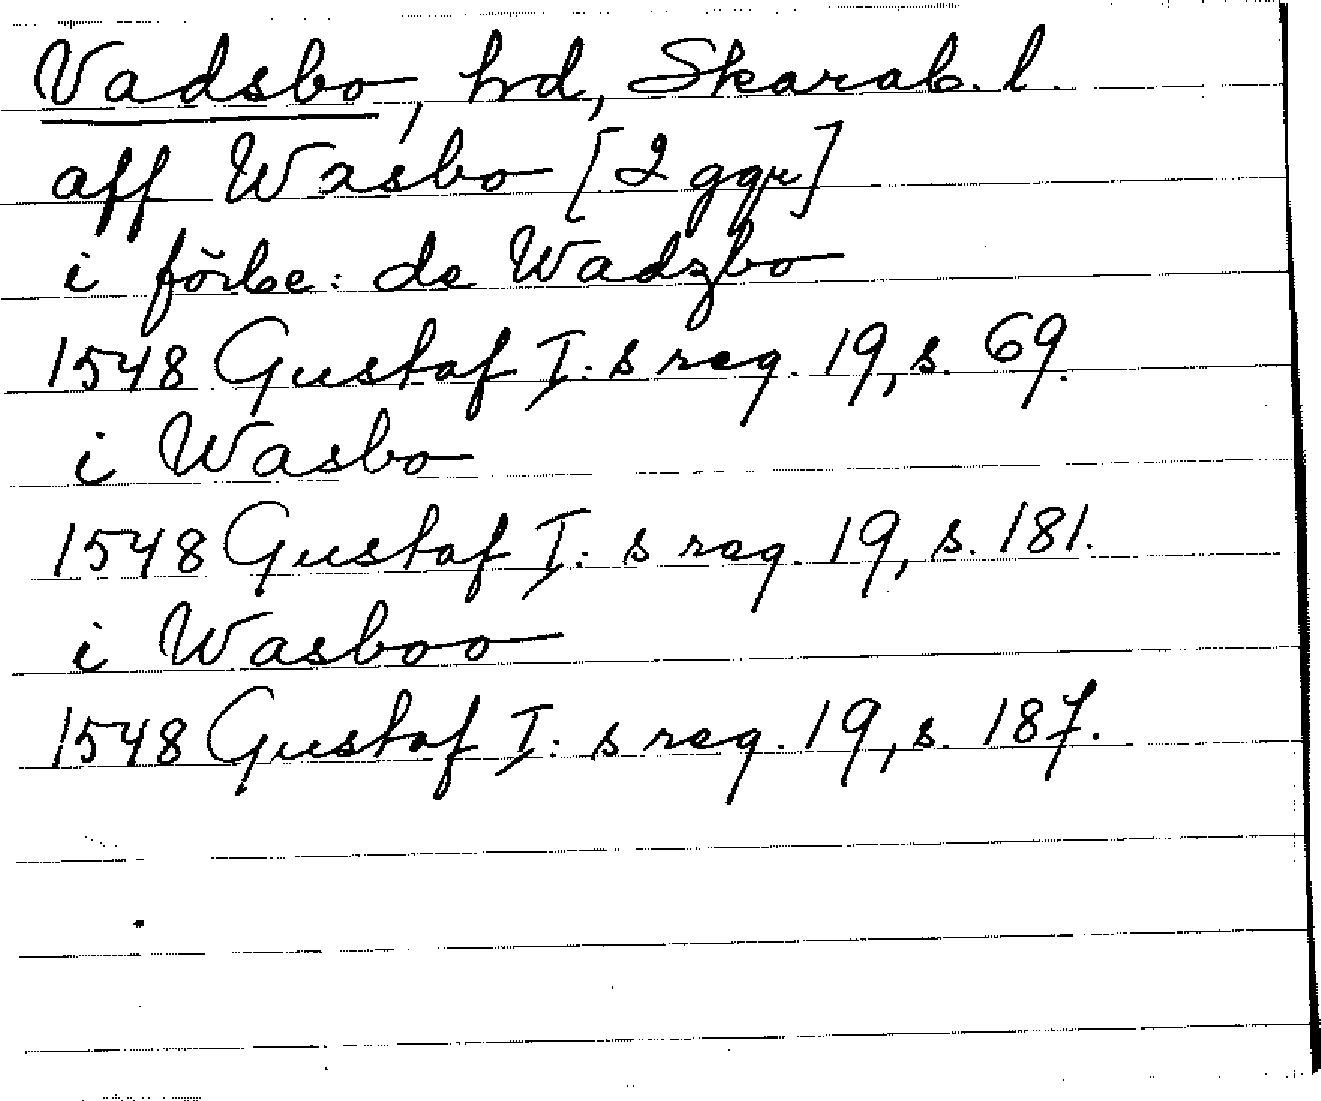 Vadsbo, hd, Skarab. l.
aff Wasbo [2 ggr]
i förbe: de Wadzbo
1548 Gustaf I: s reg. 19, s. 69.
i Wasbo
1548 Gustaf I: s reg. 19, s. 181.
i Wasboo
1548 Gustaf I: s reg. 19, s. 187.